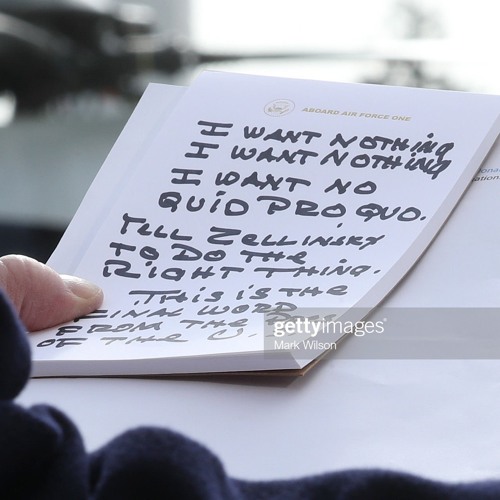 ABOARD AIR FORCE ONE
I WANT NOTHING
I WANT NOTHING
I WANT NO
QUID PRO QUO.
TELL ZELLINSKY
TO DO THE
RIGHT THING.
THIS IS THE
FINAL WORD
FROM THE
OF THE U.
gettyimages®
Mark Wilson